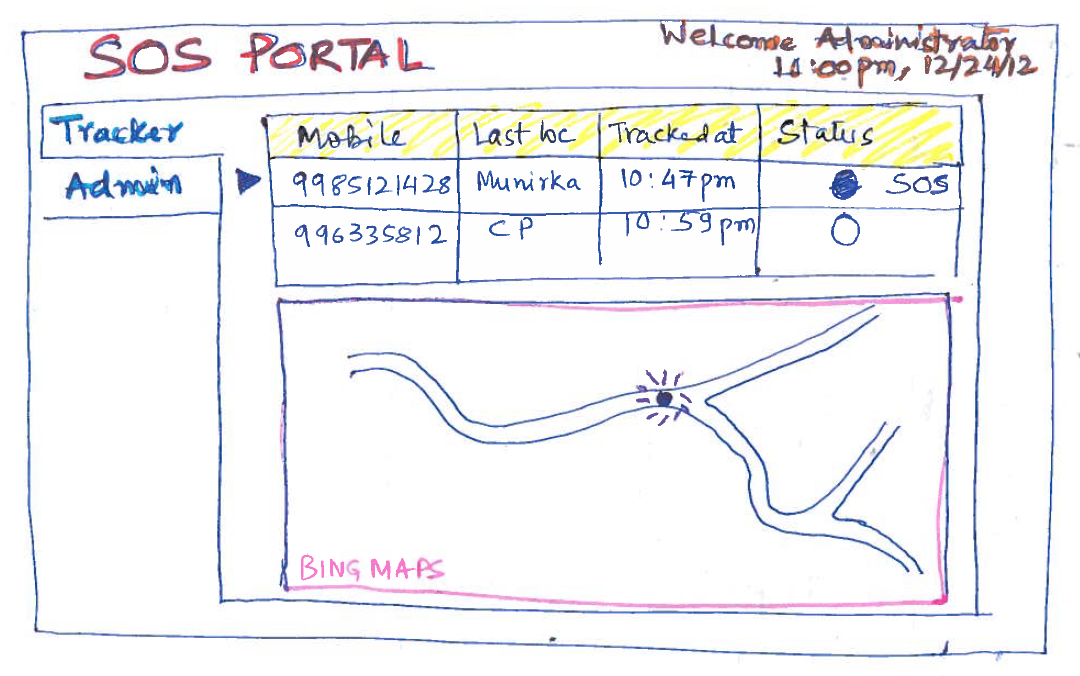 SOS PORTAL
Welcome Administrator
11:00pm, 12/24/12
Tracker
Admin
Mobile Last loc Tracked at Status
9985121428 Munirka 10:47pm SOS
996335812 CP 10:59pm
BING MAPS